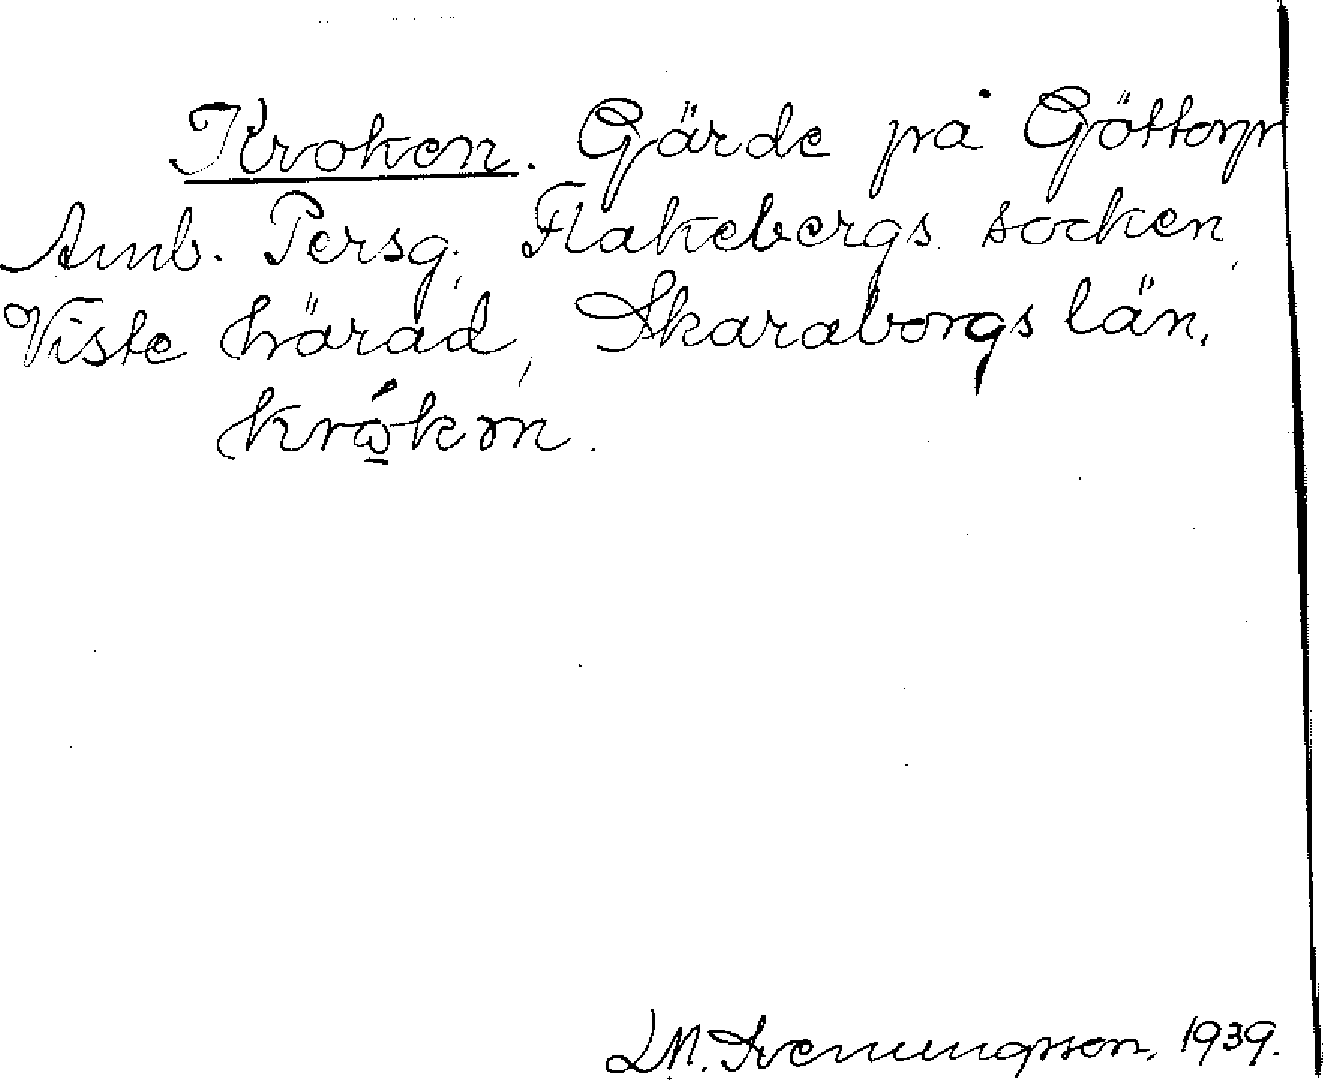 Kroken. Gärde på Göttorp
Amb. Persg., Flakebergs socken,
Viste härad, Skaraborgs län.
krókɷn.
L M. Svenungsson, 1939.